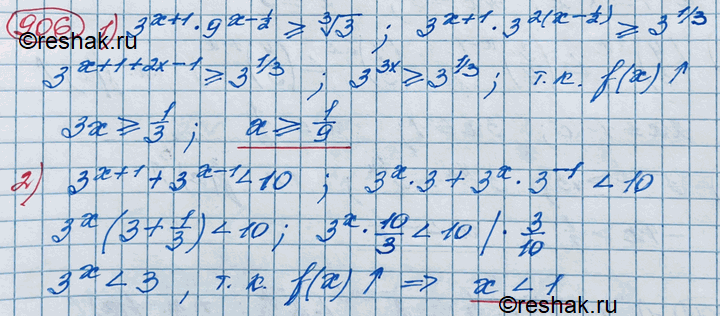 906 1) 3^(x+1) · 9^(x-1/2) ≥ ∛3 ; 3^(x+1) · 3^(2(x-1/2)) ≥ 3^(1/3)
©reshak.ru
3^(x+1+2x-1) ≥ 3^(1/3) ; 3^(3x) ≥ 3^(1/3) ; т.к. f(x) ↑
3x ≥ 1/3 ; x ≥ 1/9
2) 3^(x+1) + 3^(x-1) < 10 ; 3^x · 3 + 3^x · 3^(-1) < 10
3^x (3 + 1/3) < 10 ; 3^x · 10/3 < 10 | · 3/10
3^x < 3 , т.к. f(x) ↑ => x < 1
©reshak.ru